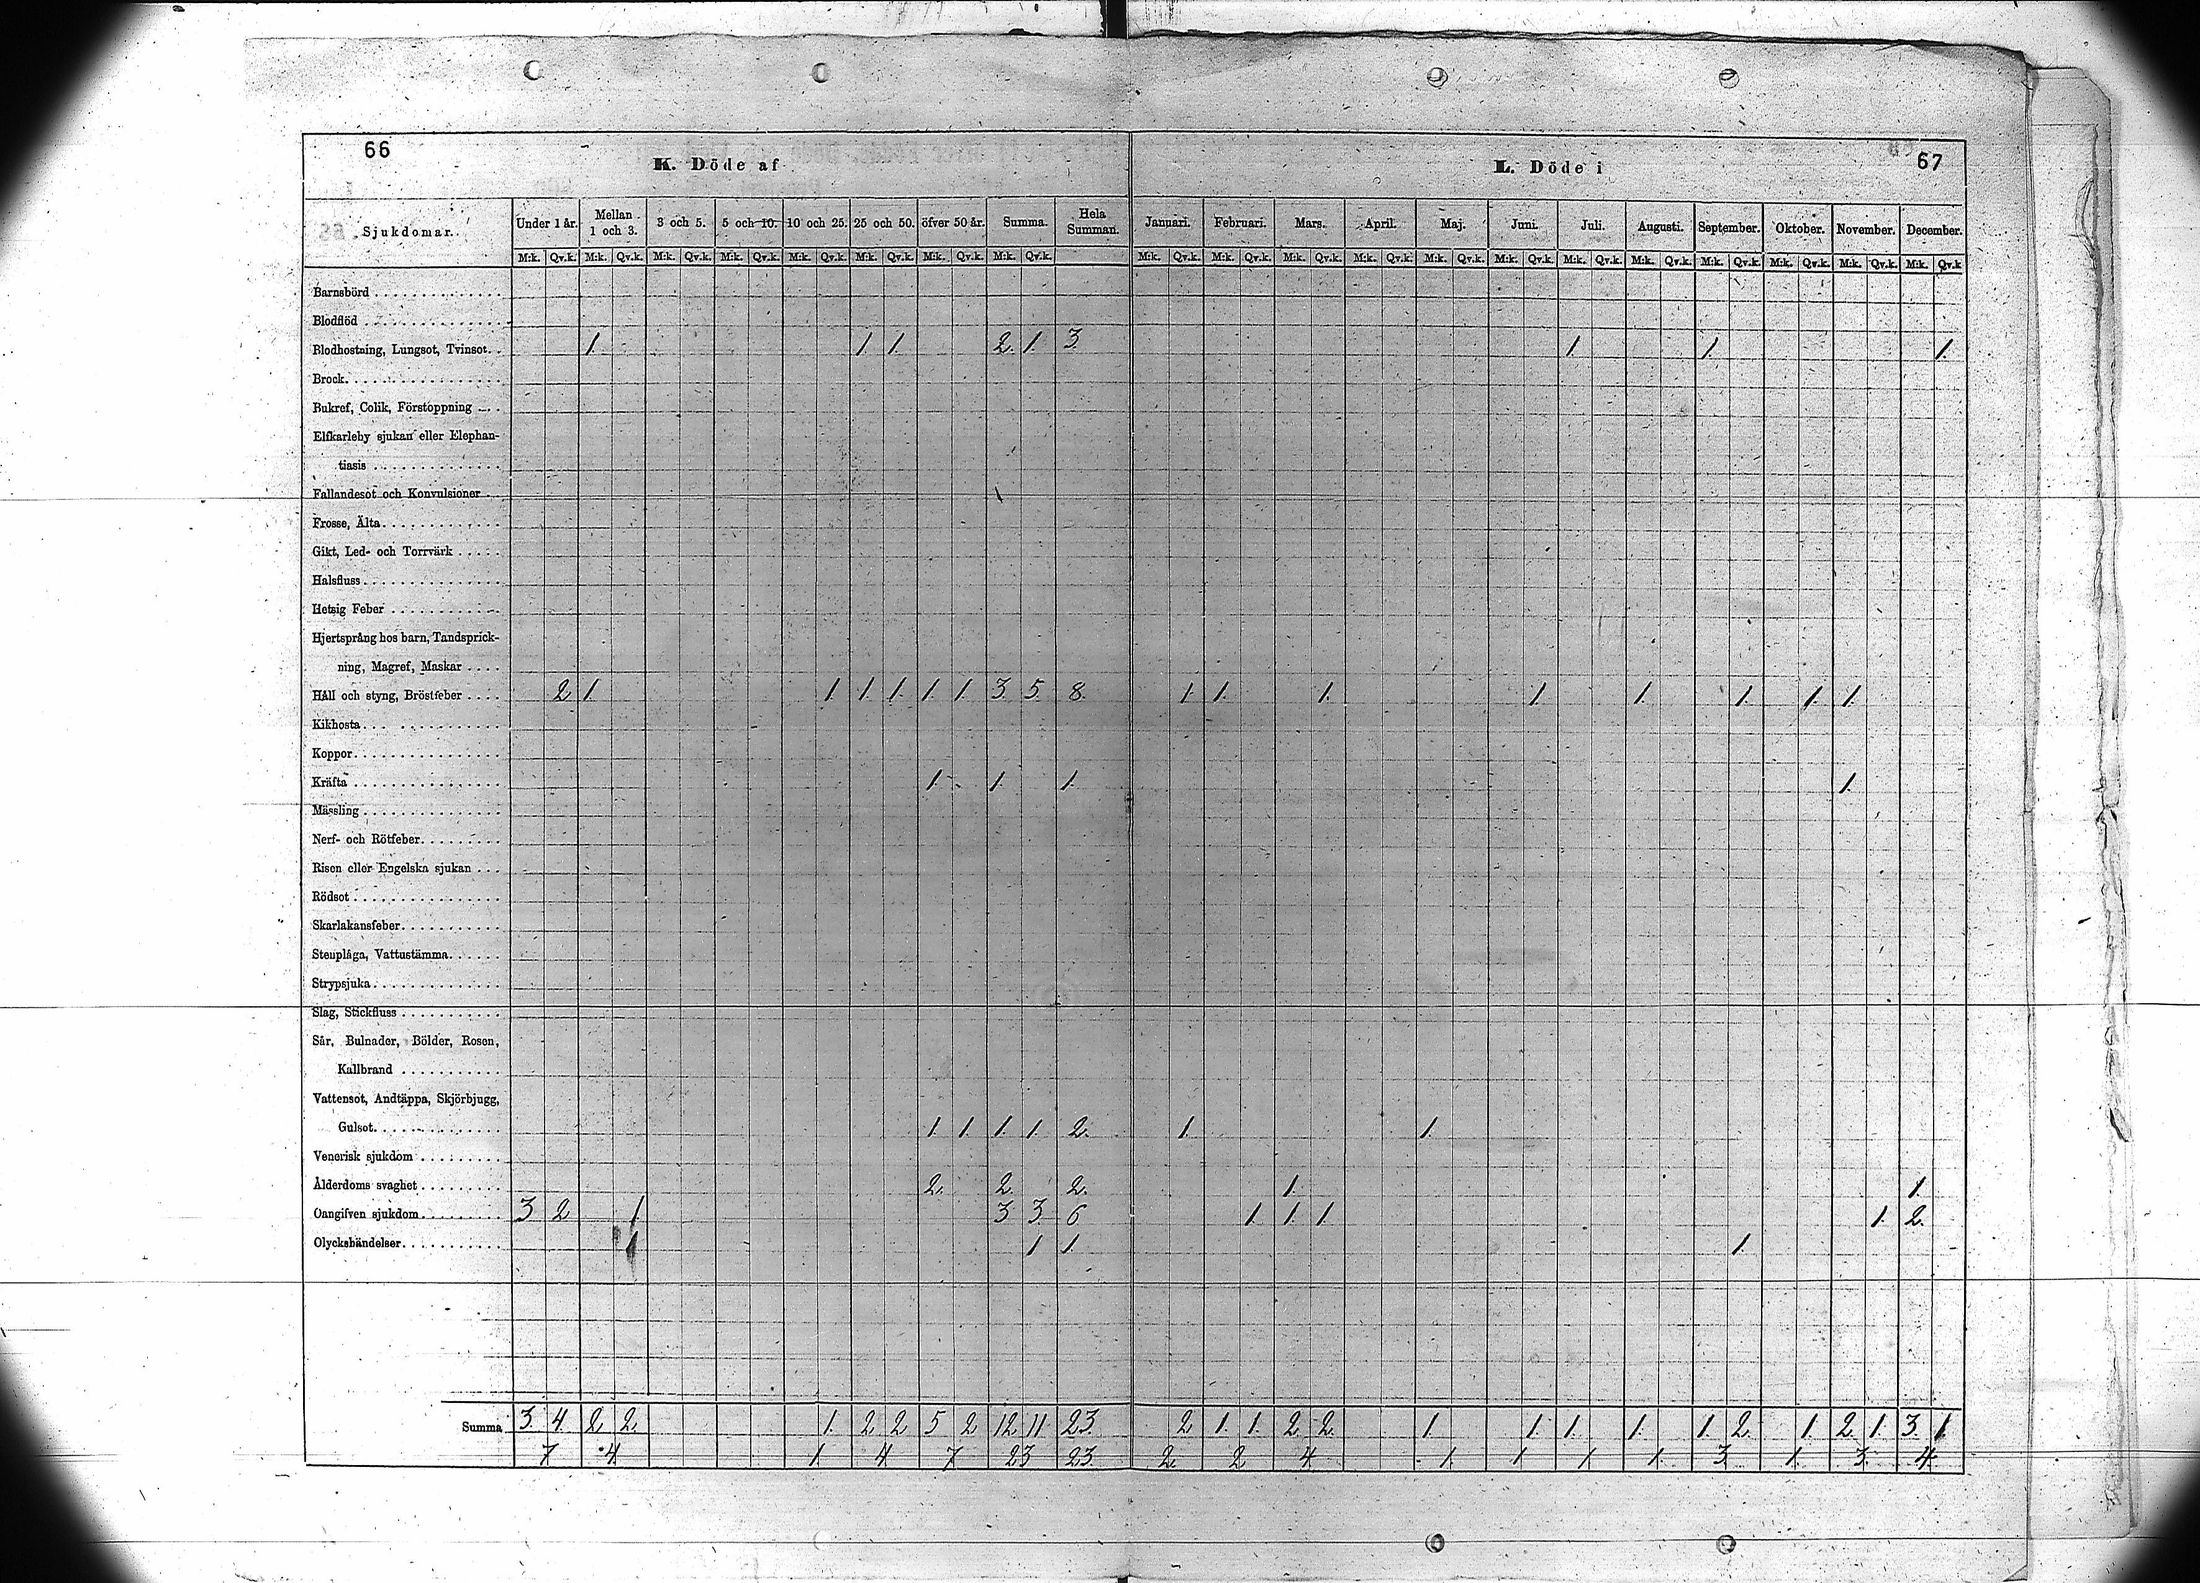 66
K. Döde af
L. Döde i
67
Sjukdomar. Under 1 år. Mellan 1 och 3. 3 och 5. 5 och 10. 10 och 25. 25 och 50. öfver 50 år. Summa. Hela Summan. Januari. Februari. Mars. April. Maj. Juni. Juli. Augusti. September. Oktober. November. December.
M:k. Qv.k. M:k. Qv.k. M:k. Qv.k. M:k. Qv.k. M:k. Qv.k. M:k. Qv.k. M:k. Qv.k. M:k. Qv.k. M:k. Qv.k. M:k. Qv.k. M:k. Qv.k. M:k. Qv.k. M:k. Qv.k. M:k. Qv.k. M:k. Qv.k. M:k. Qv.k. M:k. Qv.k. M:k. Qv.k. M:k. Qv.k. M:k. Qv.k
Barnsbörd
Blodflöd
Blodhostning, Lungsot, Tvinsot. 1. 1 1. 2. 1. 3. 1. 1. 1.
Brock
Bukref, Colik, Förstoppning
Elfkarleby sjukan eller Elephan-
tiasis
Fallandesot och Konvulsioner
Frosse, Älta
Gikt, Led- och Torrvärk
Halsfluss
Hetsig Feber
Hjertsprång hos barn, Tandsprick-
ning, Magref, Maskar
Håll och styng, Bröstfeber 2 1. 1. 1. 1. 1. 1. 3. 5. 8. 1. 1. 1. 1. 1. 1. 1. 1.
Kikhosta
Koppor
Kräfta 1. 1. 1. 1.
Mässling
Nerf- och Rötfeber
Risen eller Engelska sjukan
Rödsot
Skarlakansfeber
Stenplåga, Vattustämma
Strypsjuka
Slag, Stickfluss
Sår, Bulnader, Bölder, Rosen,
Kallbrand
Vattensot, Andtäppa, Skjörbjugg,
Gulsot 1. 1. 1. 1. 2. 1. 1.
Venerisk sjukdom
Ålderdoms svaghet 2. 2. 2. 1. 1.
Oangifven sjukdom 3 2 1 3. 3. 6 1. 1. 1. 1. 2.
Olyckshändelser 1 1 1. 1.
Summa 3. 4. 2. 2. 1. 2 2 5 2 12 11 23. 2 1. 1. 2. 2. 1. 1. 1. 1. 1. 2. 1. 2. 1. 3. 1.
7 4 1. 4. 7 23 23. 2. 2 4 1. 1. 1. 1. 3. 1. 3. 4.